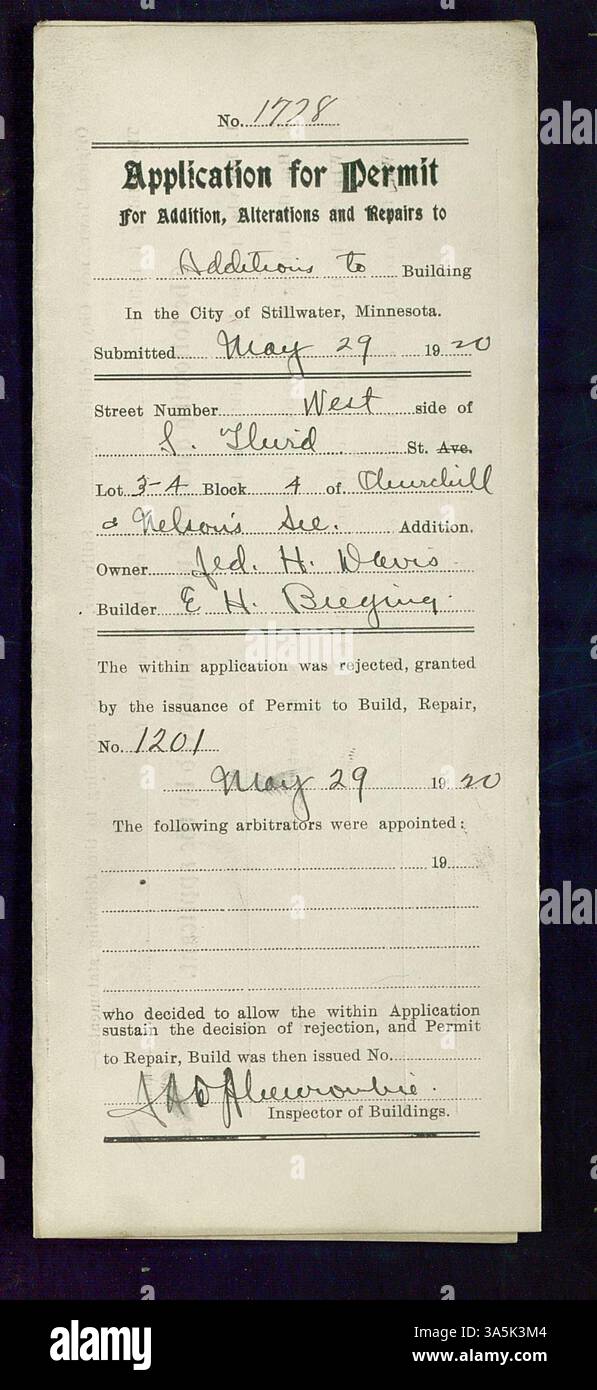 No. 1728
Application for Permit
For Addition, Alterations and Repairs to
Additions to Building
In the City of Stillwater, Minnesota.
Submitted May 29 1920
Street Number West side of
S. Third St. Ave.
Lot 3-4 Block 4 of Churchill
& Nelson's Sec. Addition.
Owner Jed. H. Davis
Builder E H. Bieging
The within application was rejected, granted
by the issuance of Permit to Build, Repair,
No. 1201
May 29 1920
The following arbitrators were appointed:
19
who decided to allow the within Application
sustain the decision of rejection, and Permit
to Repair, Build was then issued No.
Abercrombie.
Inspector of Buildings.
alamy
Image ID: 3A5K3M4
www.alamy.com